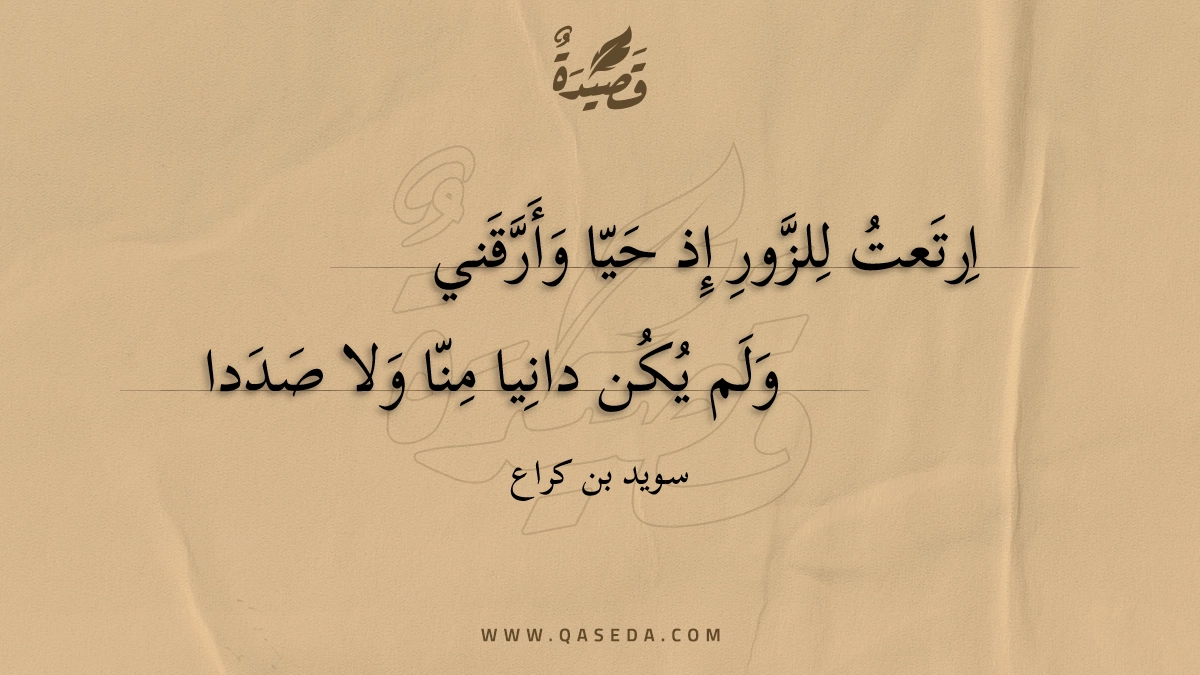 قَصِيدَةٌ
اِرتَعتُ لِلزَّورِ إِذ حَيّا وَأَرَّقَني
وَلَم يُكُن دانِيا مِنّا وَلا صَدَدا
سويد بن كراع
WWW.QASEDA.COM